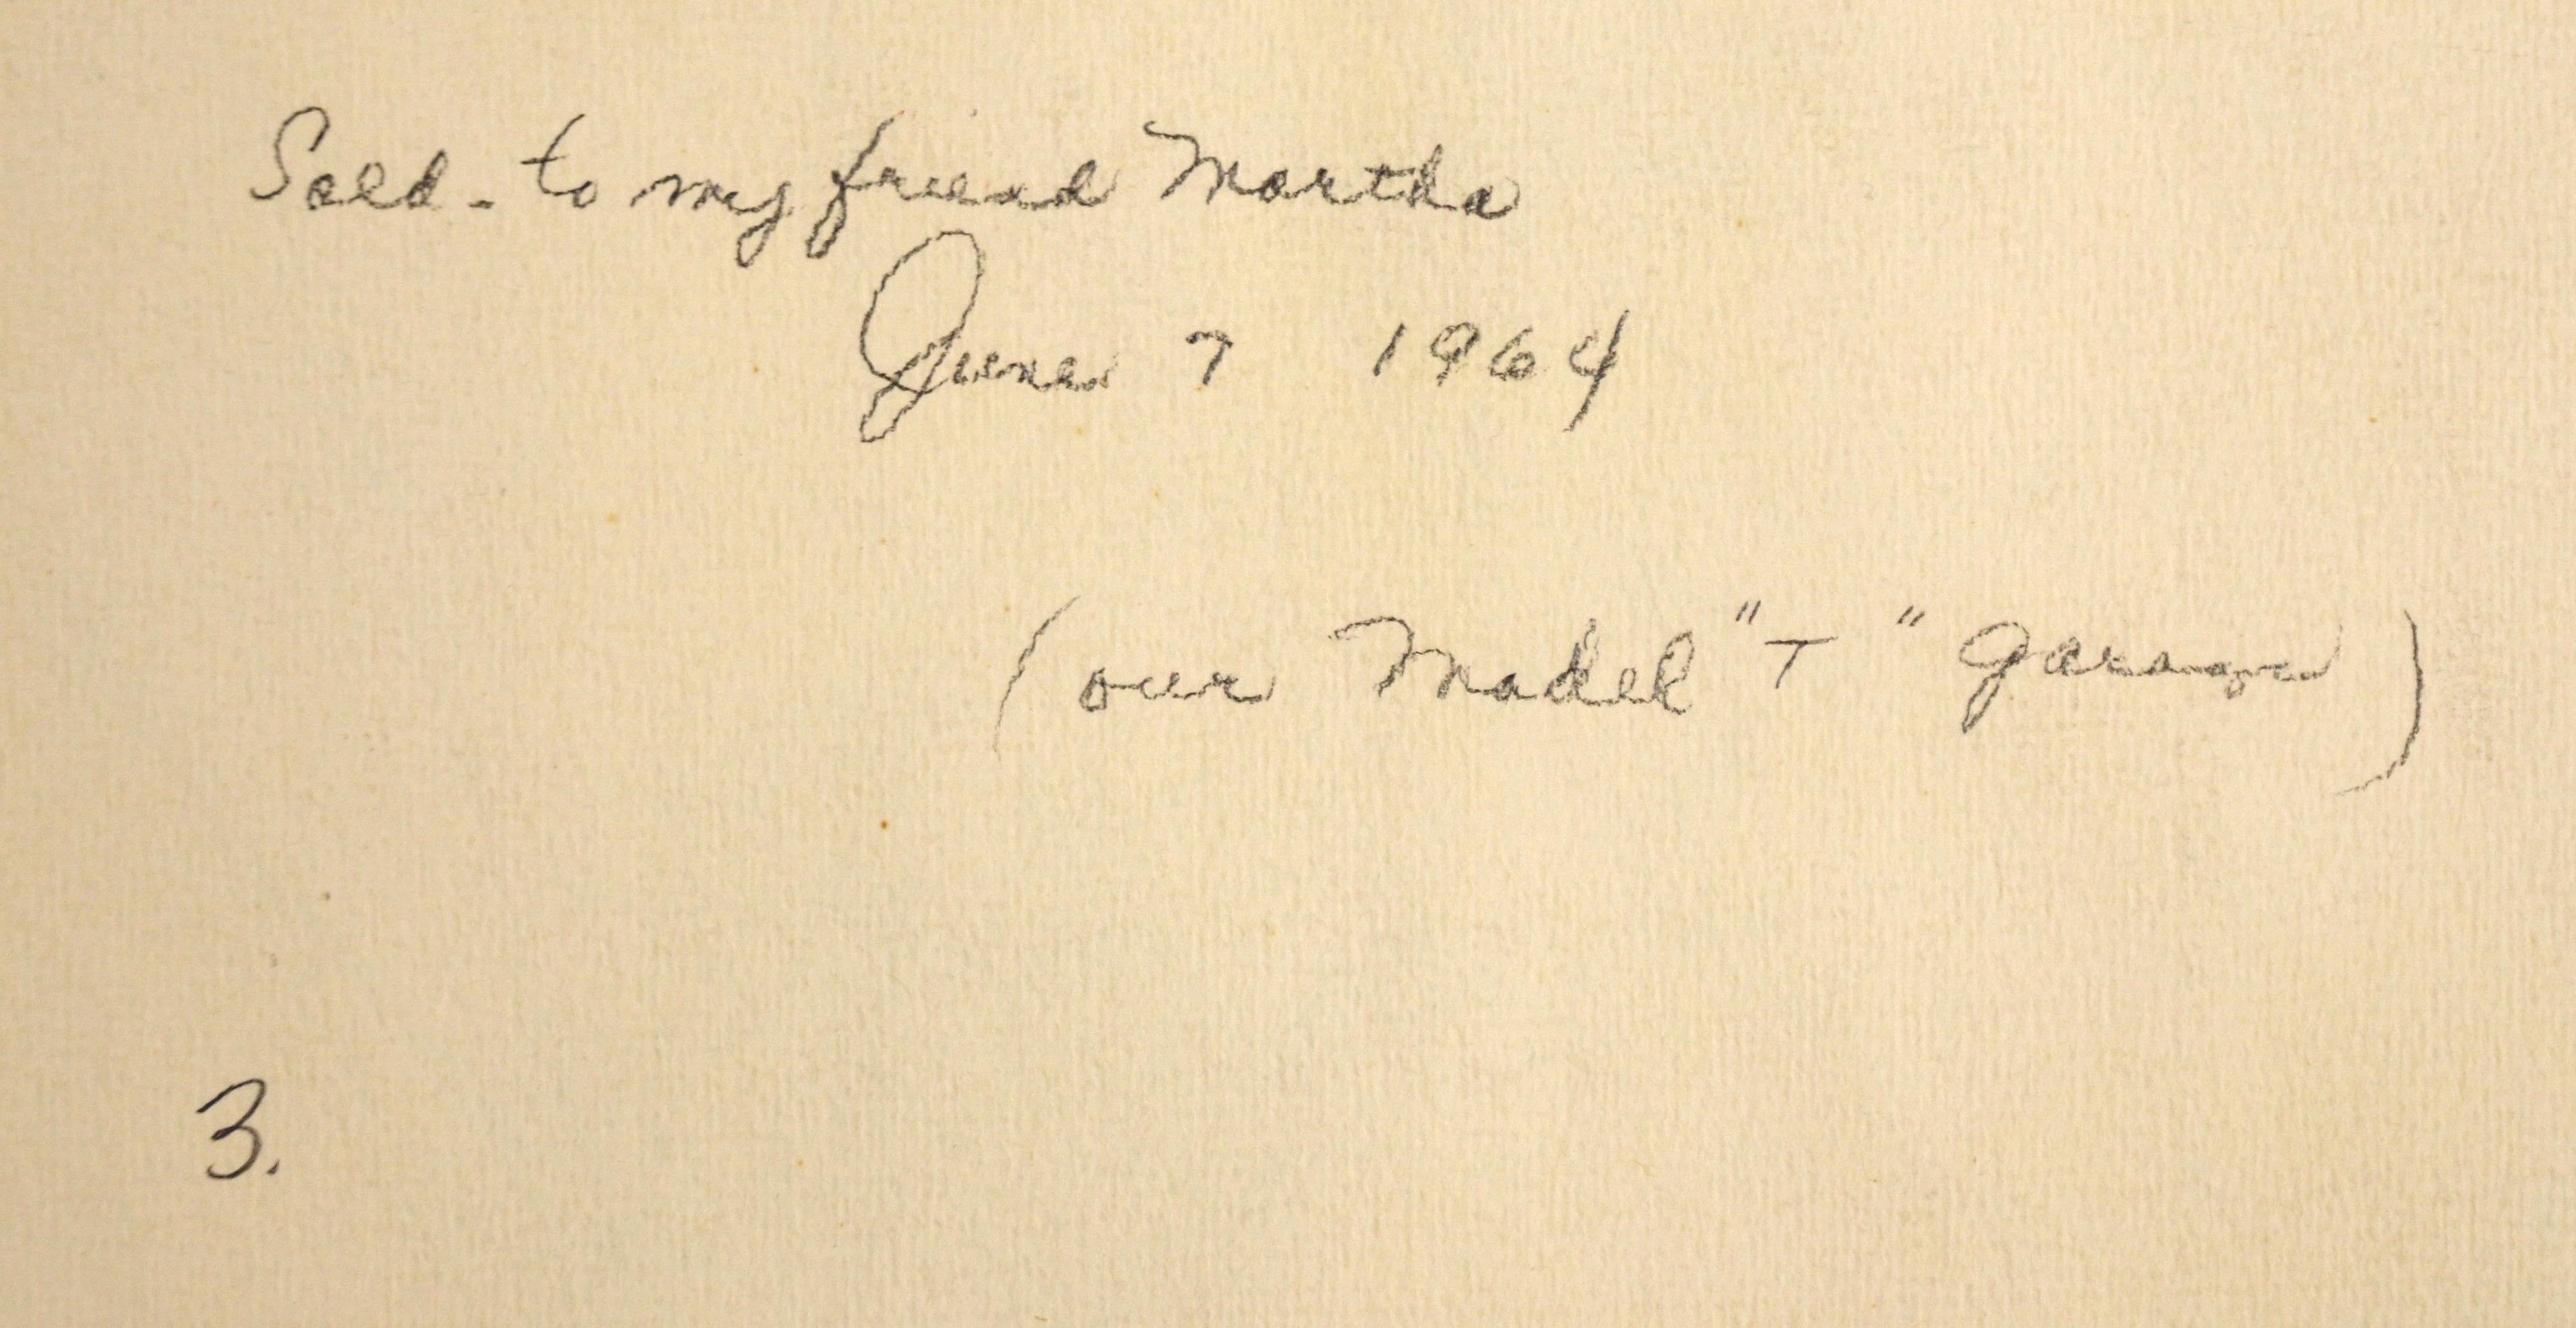 Sold - to my friend Martha
June 7 1964
(our Model "T" Garage)
3.